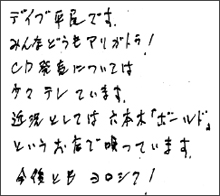 デイブ平尾です.
みんなどうもアリガトウ!
CD発売については
テレています.
近況としては六本木「ゴールド」
というお店で唄っています.
今後ともヨロシク!